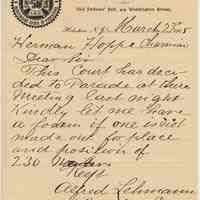 Odd Fellows' Hall, 414 Washington Street,
Hoboken N.J. March 23rd
Herman Hoppe Chairman
Dear Sir
This Court has deci-
ded to Parade at there
Meeting last night
Kindly let me have
a form if one is Dist
made out for place
and position of
230
Respt
Alfred Lehmann